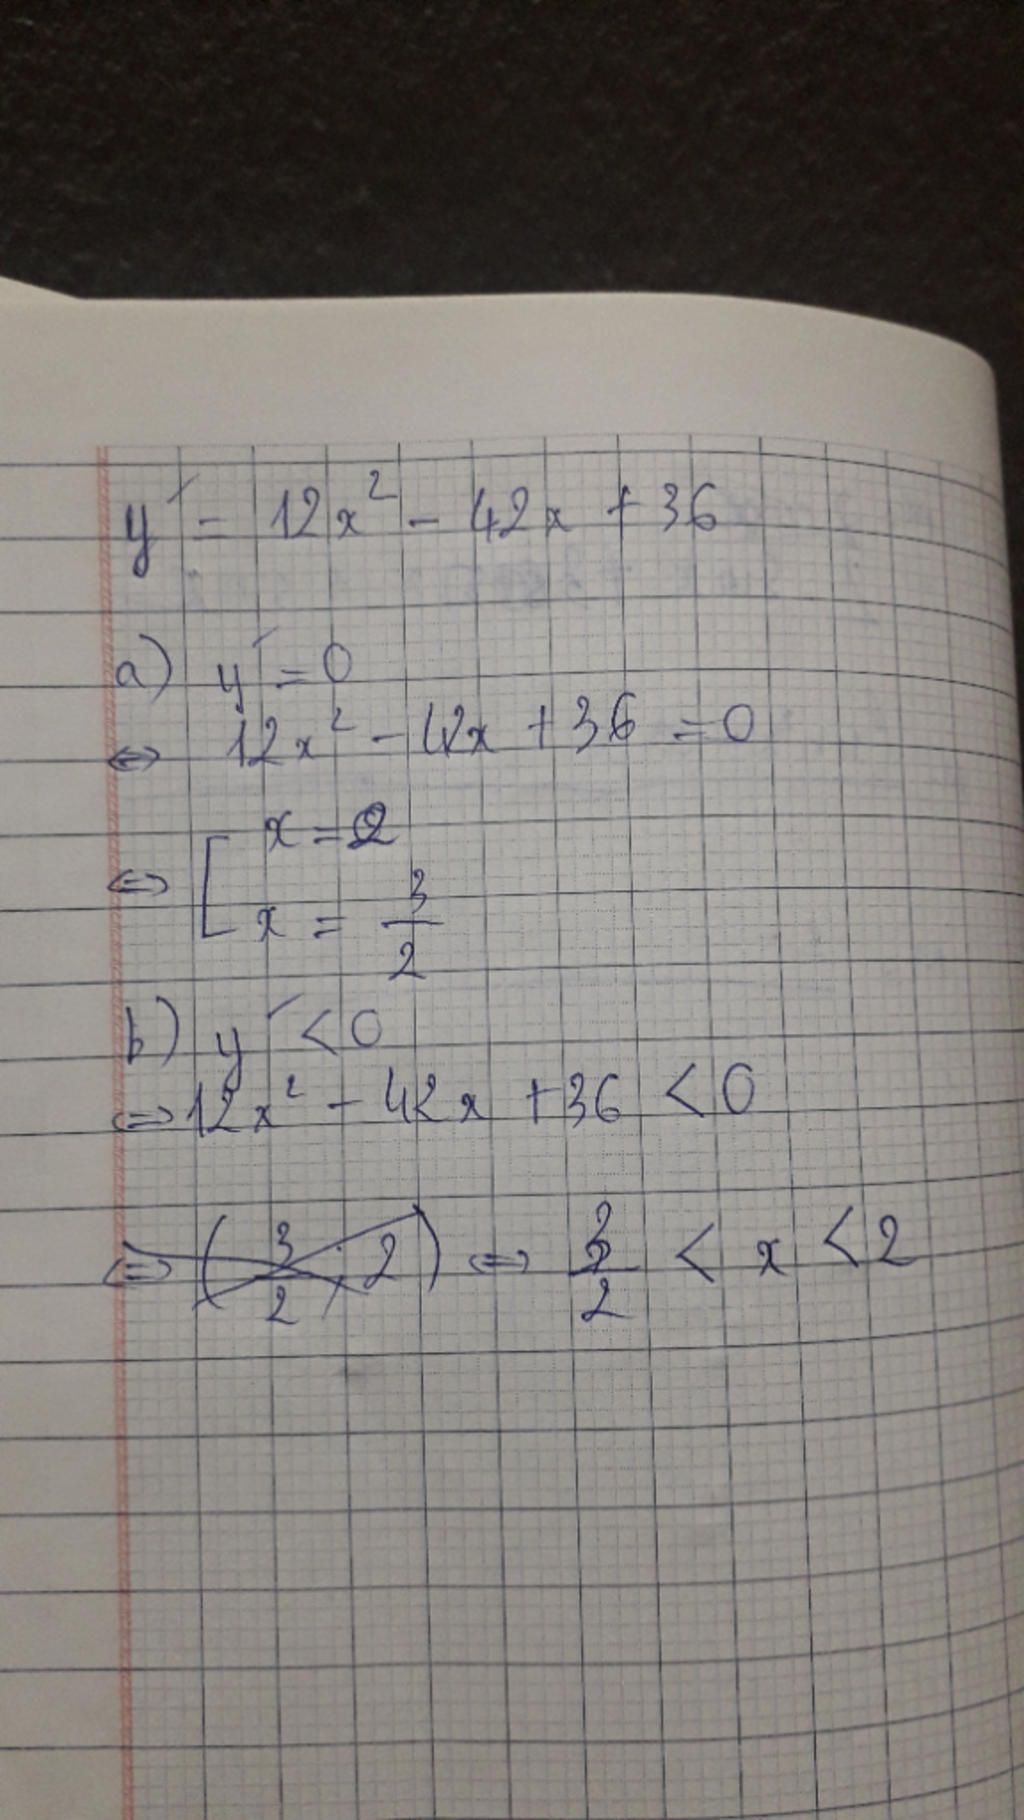 y' = 12x² - 42x + 36
a) y' = 0
⇔ 12x² - 42x + 36 = 0
⇔ [ x = 2
x = 3/2
b) y' < 0
⇔ 12x² - 42x + 36 < 0
⇔ (3/2; 2) ⇔ 3/2 < x < 2